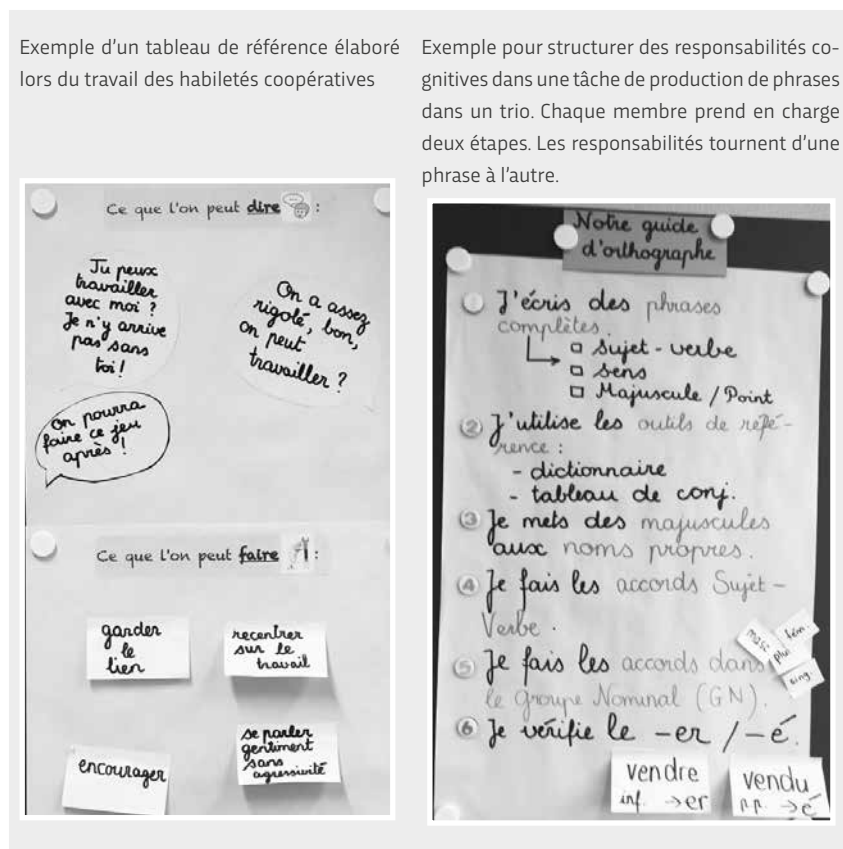 Exemple d'un tableau de référence élaboré
lors du travail des habiletés coopératives
Ce que l'on peut dire :
Tu peux
travailler
avec moi ?
Je n'y arrive
pas sans
toi !
On a assez
rigolé, bon,
on peut
travailler ?
On pourra
faire ce jeu
après !
Ce que l'on peut faire :
garder
le
lien
recentrer
sur le
travail
encourager
se parler
gentiment
sans
agressivité
Exemple pour structurer des responsabilités co-
gnitives dans une tâche de production de phrases
dans un trio. Chaque membre prend en charge
deux étapes. Les responsabilités tournent d'une
phrase à l'autre.
Notre guide
d'orthographe
1 J'écris des phrases
complètes.
Sujet - verbe
Sens
Majuscule / Point
2 J'utilise les outils de réfé-
rence :
- dictionnaire
- tableau de conj.
3 Je mets des majuscules
aux noms propres.
4 Je fais les accords Sujet -
Verbe.
5 Je fais les accords dans
le Groupe Nominal (GN).
masc.
fém.
plu
sing.
6 Je vérifie le -er / -é.
vendre
inf. → er
vendu
p.p. → é